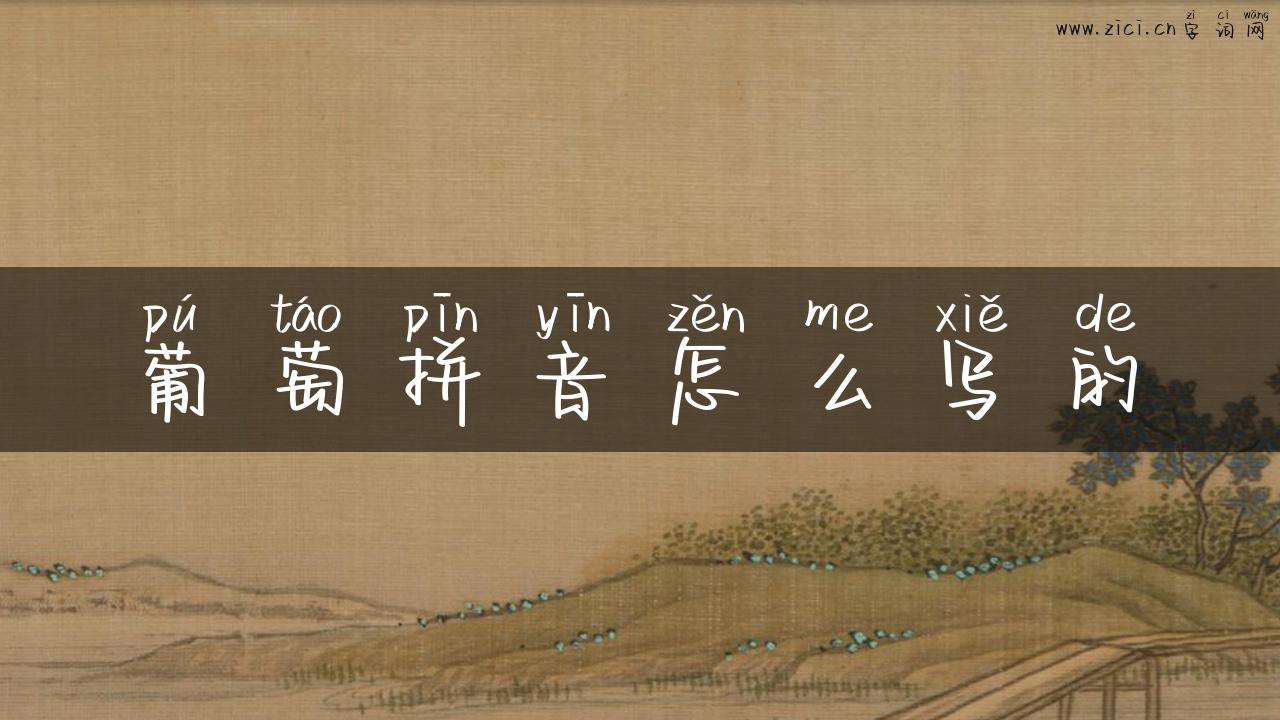 zì cí wǎng
www.zici.cn字词网
pú táo pīn yīn zěn me xiě de
葡萄拼音怎么写的